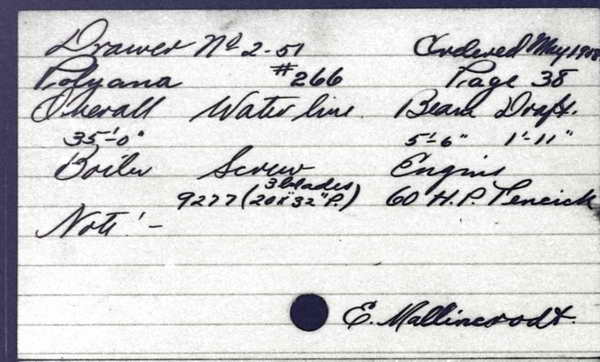 Drawer No 2-51 Ordered May 1908
Polyana #266 Page 38
Overall Water line. Beam Draft.
35'-0" 5'-6" 1'-11"
Boiler Screw Engine
9277 (3 blades 20"x32"P.) 60 H.P.
Note:-
E. Mallincrodt.